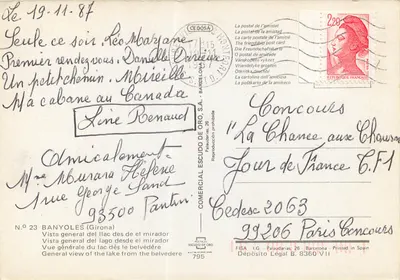 Le 19-11-87
Seule ce soir. Léo Marjane
Premier rendez vous. Danielle Darieux
Un petit chemin. Mireille
Ma cabane au Canada
Line Renaud
Amicalement.
Mme Murard Hélène
1 rue George Sand
93500 Pantin
N.º 23 BANYOLES (Girona)
Vista general del llac des de el mirador
Vista general del lago desde el mirador
Vue générale du lac dès le belvédère
General view of the lake from the belvedere
CEDOSA
COMERCIAL ESCUDO DE ORO, S.A.
Reproducción prohibida
795
Le postal de l'amitié
La postal de la amistad
La carte postale de l'amitié
The friendship post card
2,20
Concours
"La Chance aux Chansons
Jour de France T.F1
Cedesc 2063
99206 Paris Concours
Depósito Legal B. 0360 VII